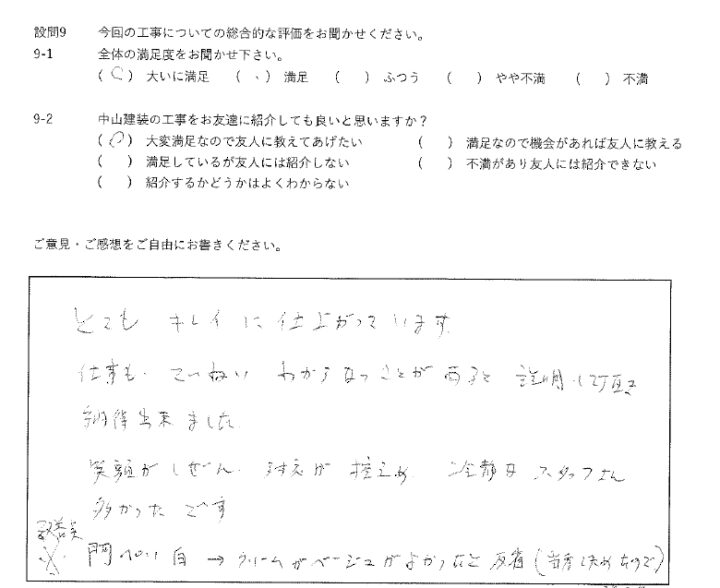 設問9 今回の工事についての総合的な評価をお聞かせください。
9-1 全体の満足度をお聞かせ下さい。
(○) 大いに満足 ( 、) 満足 ( ) ふつう ( ) やや不満 ( ) 不満
9-2 中山建装の工事をお友達に紹介しても良いと思いますか？
(○) 大変満足なので友人に教えてあげたい ( ) 満足なので機会があれば友人に教える
( ) 満足しているが友人には紹介しない ( ) 不満があり友人には紹介できない
( ) 紹介するかどうかはよくわからない
ご意見・ご感想をご自由にお書きください。
とても キレイ に 仕上がっています
仕事も. ていねい わからないことが あると 説明して頂き
納得出来ました
笑顔が しぜん. 対応が 控えめ. 冷静な スタッフさん
多かった です
改善点
※. 門 ペイント 白 → クリームかベージュがよかったなと 反省 (